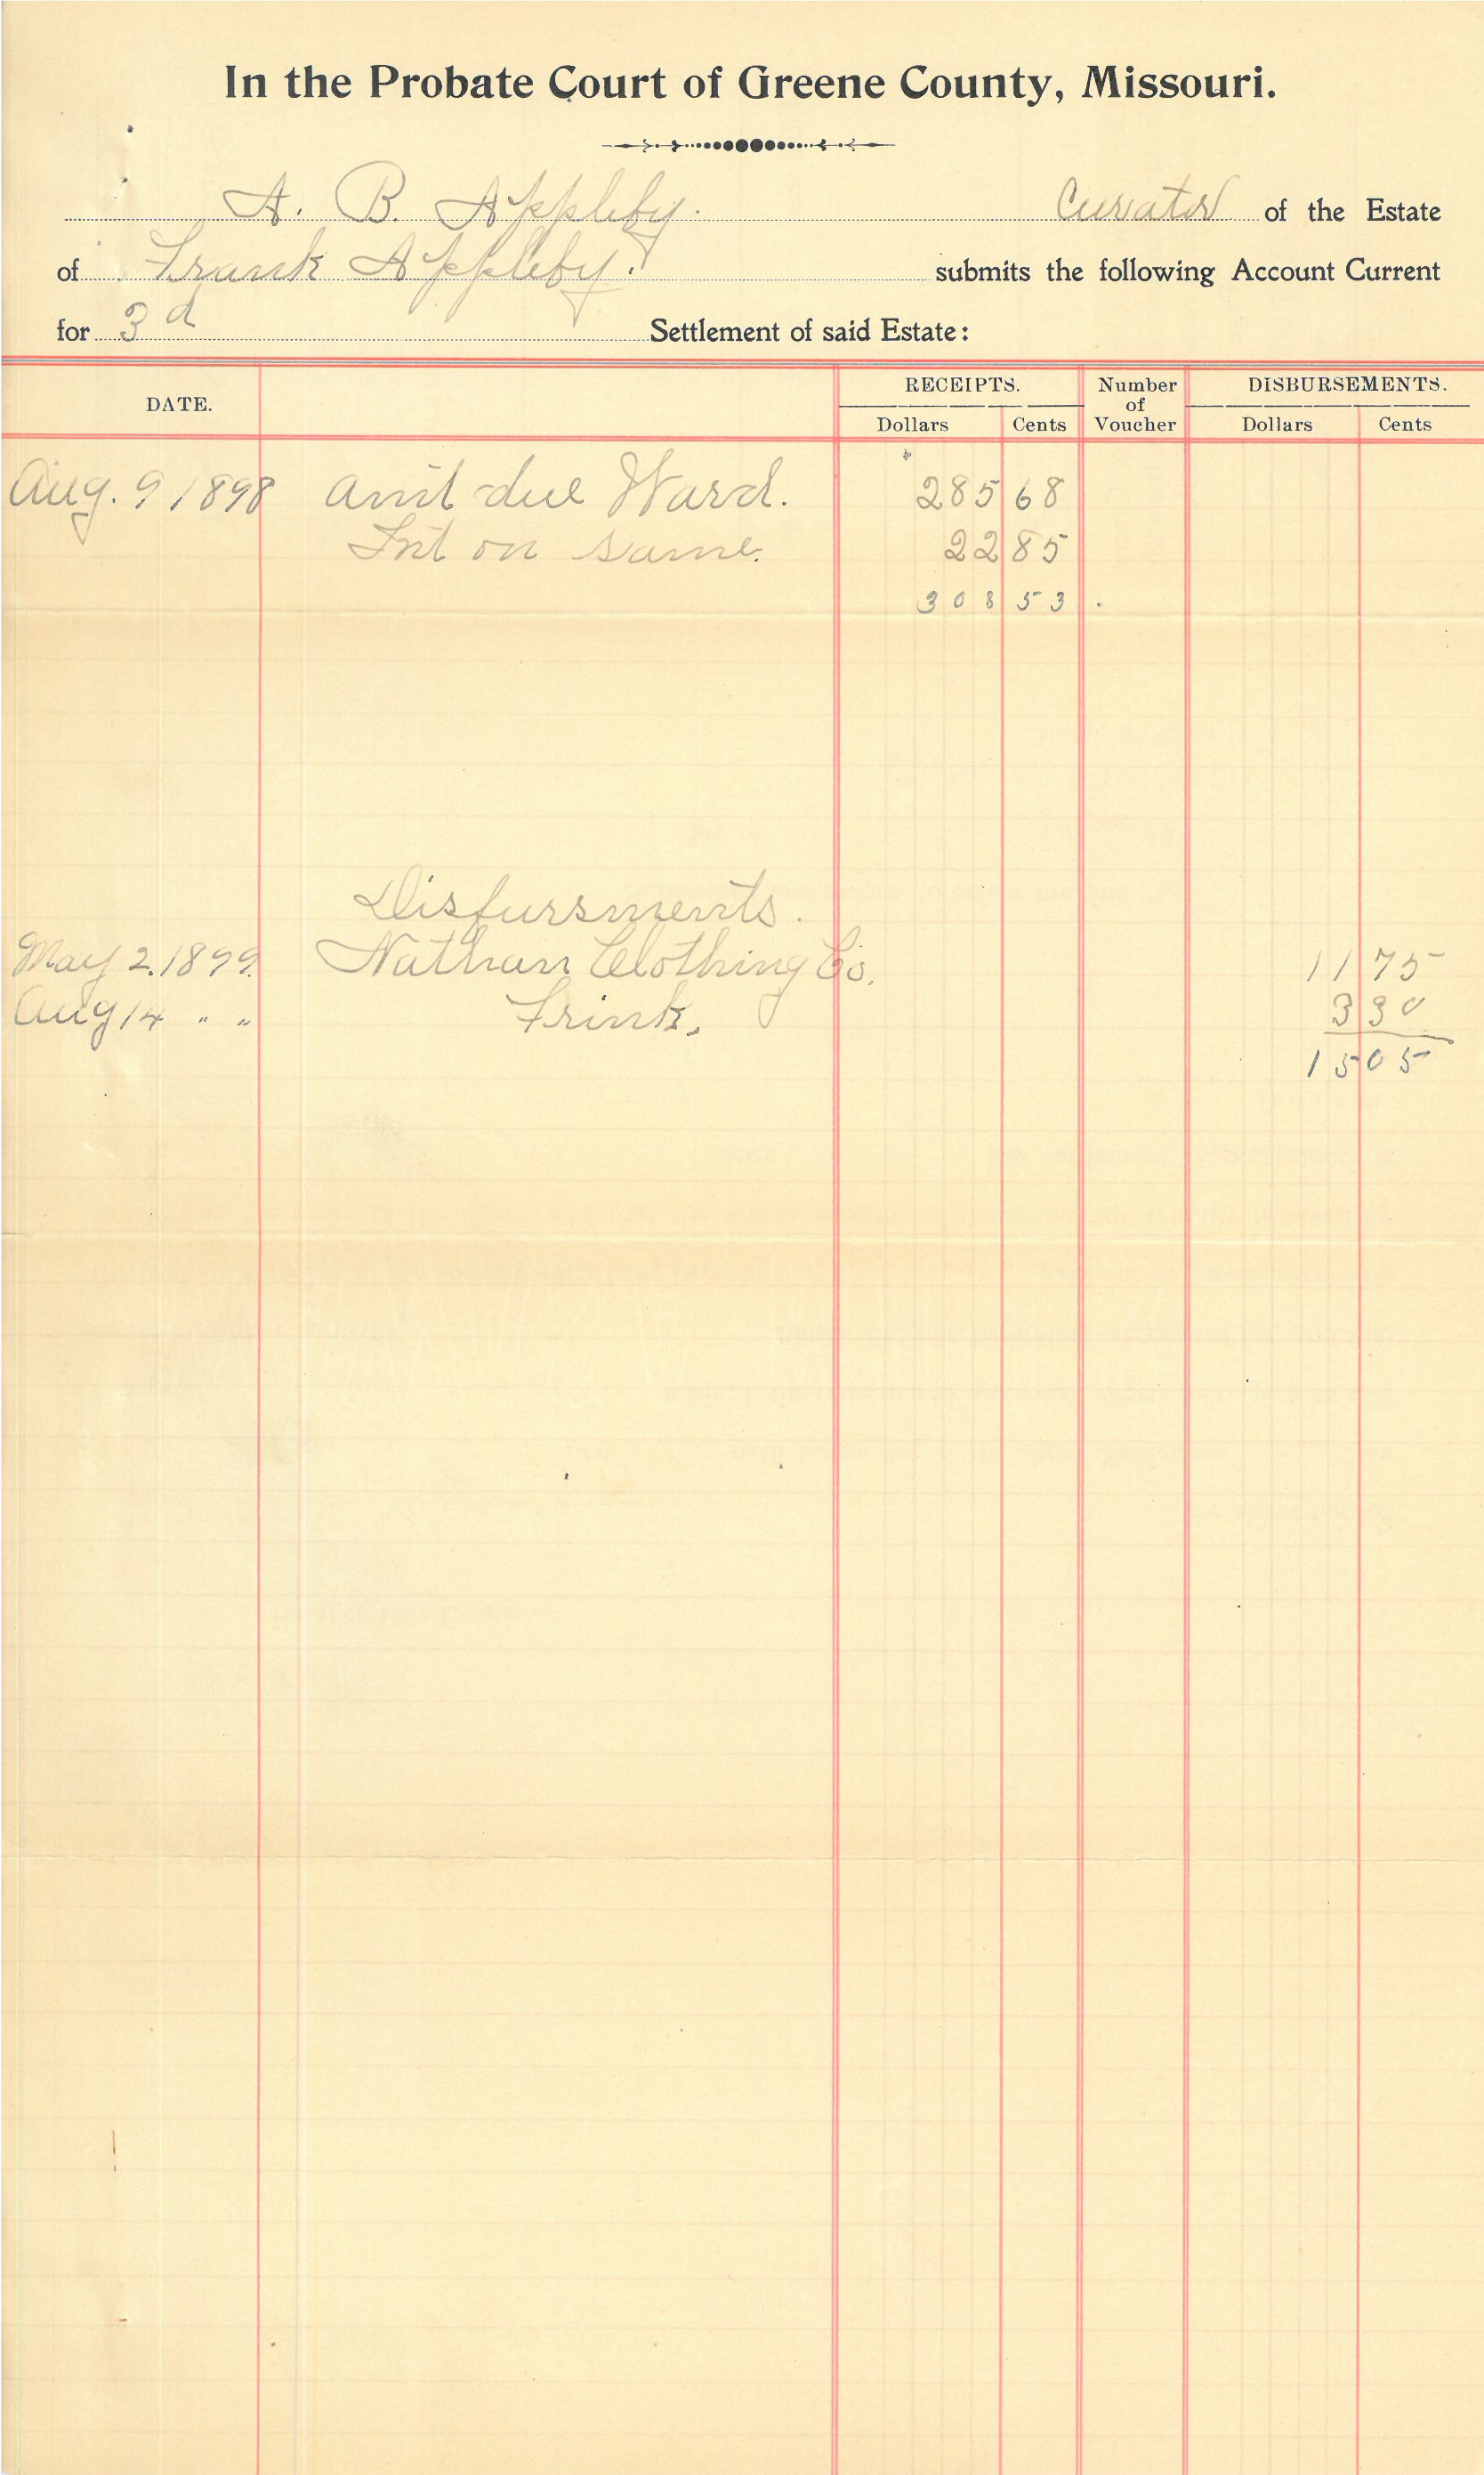 In the Probate Court of Greene County, Missouri.
A. B. Appleby. Curator of the Estate
of Frank Appleby. submits the following Account Current
for 3d Settlement of said Estate:
DATE. RECEIPTS. Number of Voucher DISBURSEMENTS.
Dollars Cents Dollars Cents
Aug. 9 1898 Amt due Ward. 285 68
Int on same. 22 85
308 53
Disfursments.
May 2. 1899. Nathan Clothing Co. 11 75
Aug 14 " " Frink. 3 30
15 05